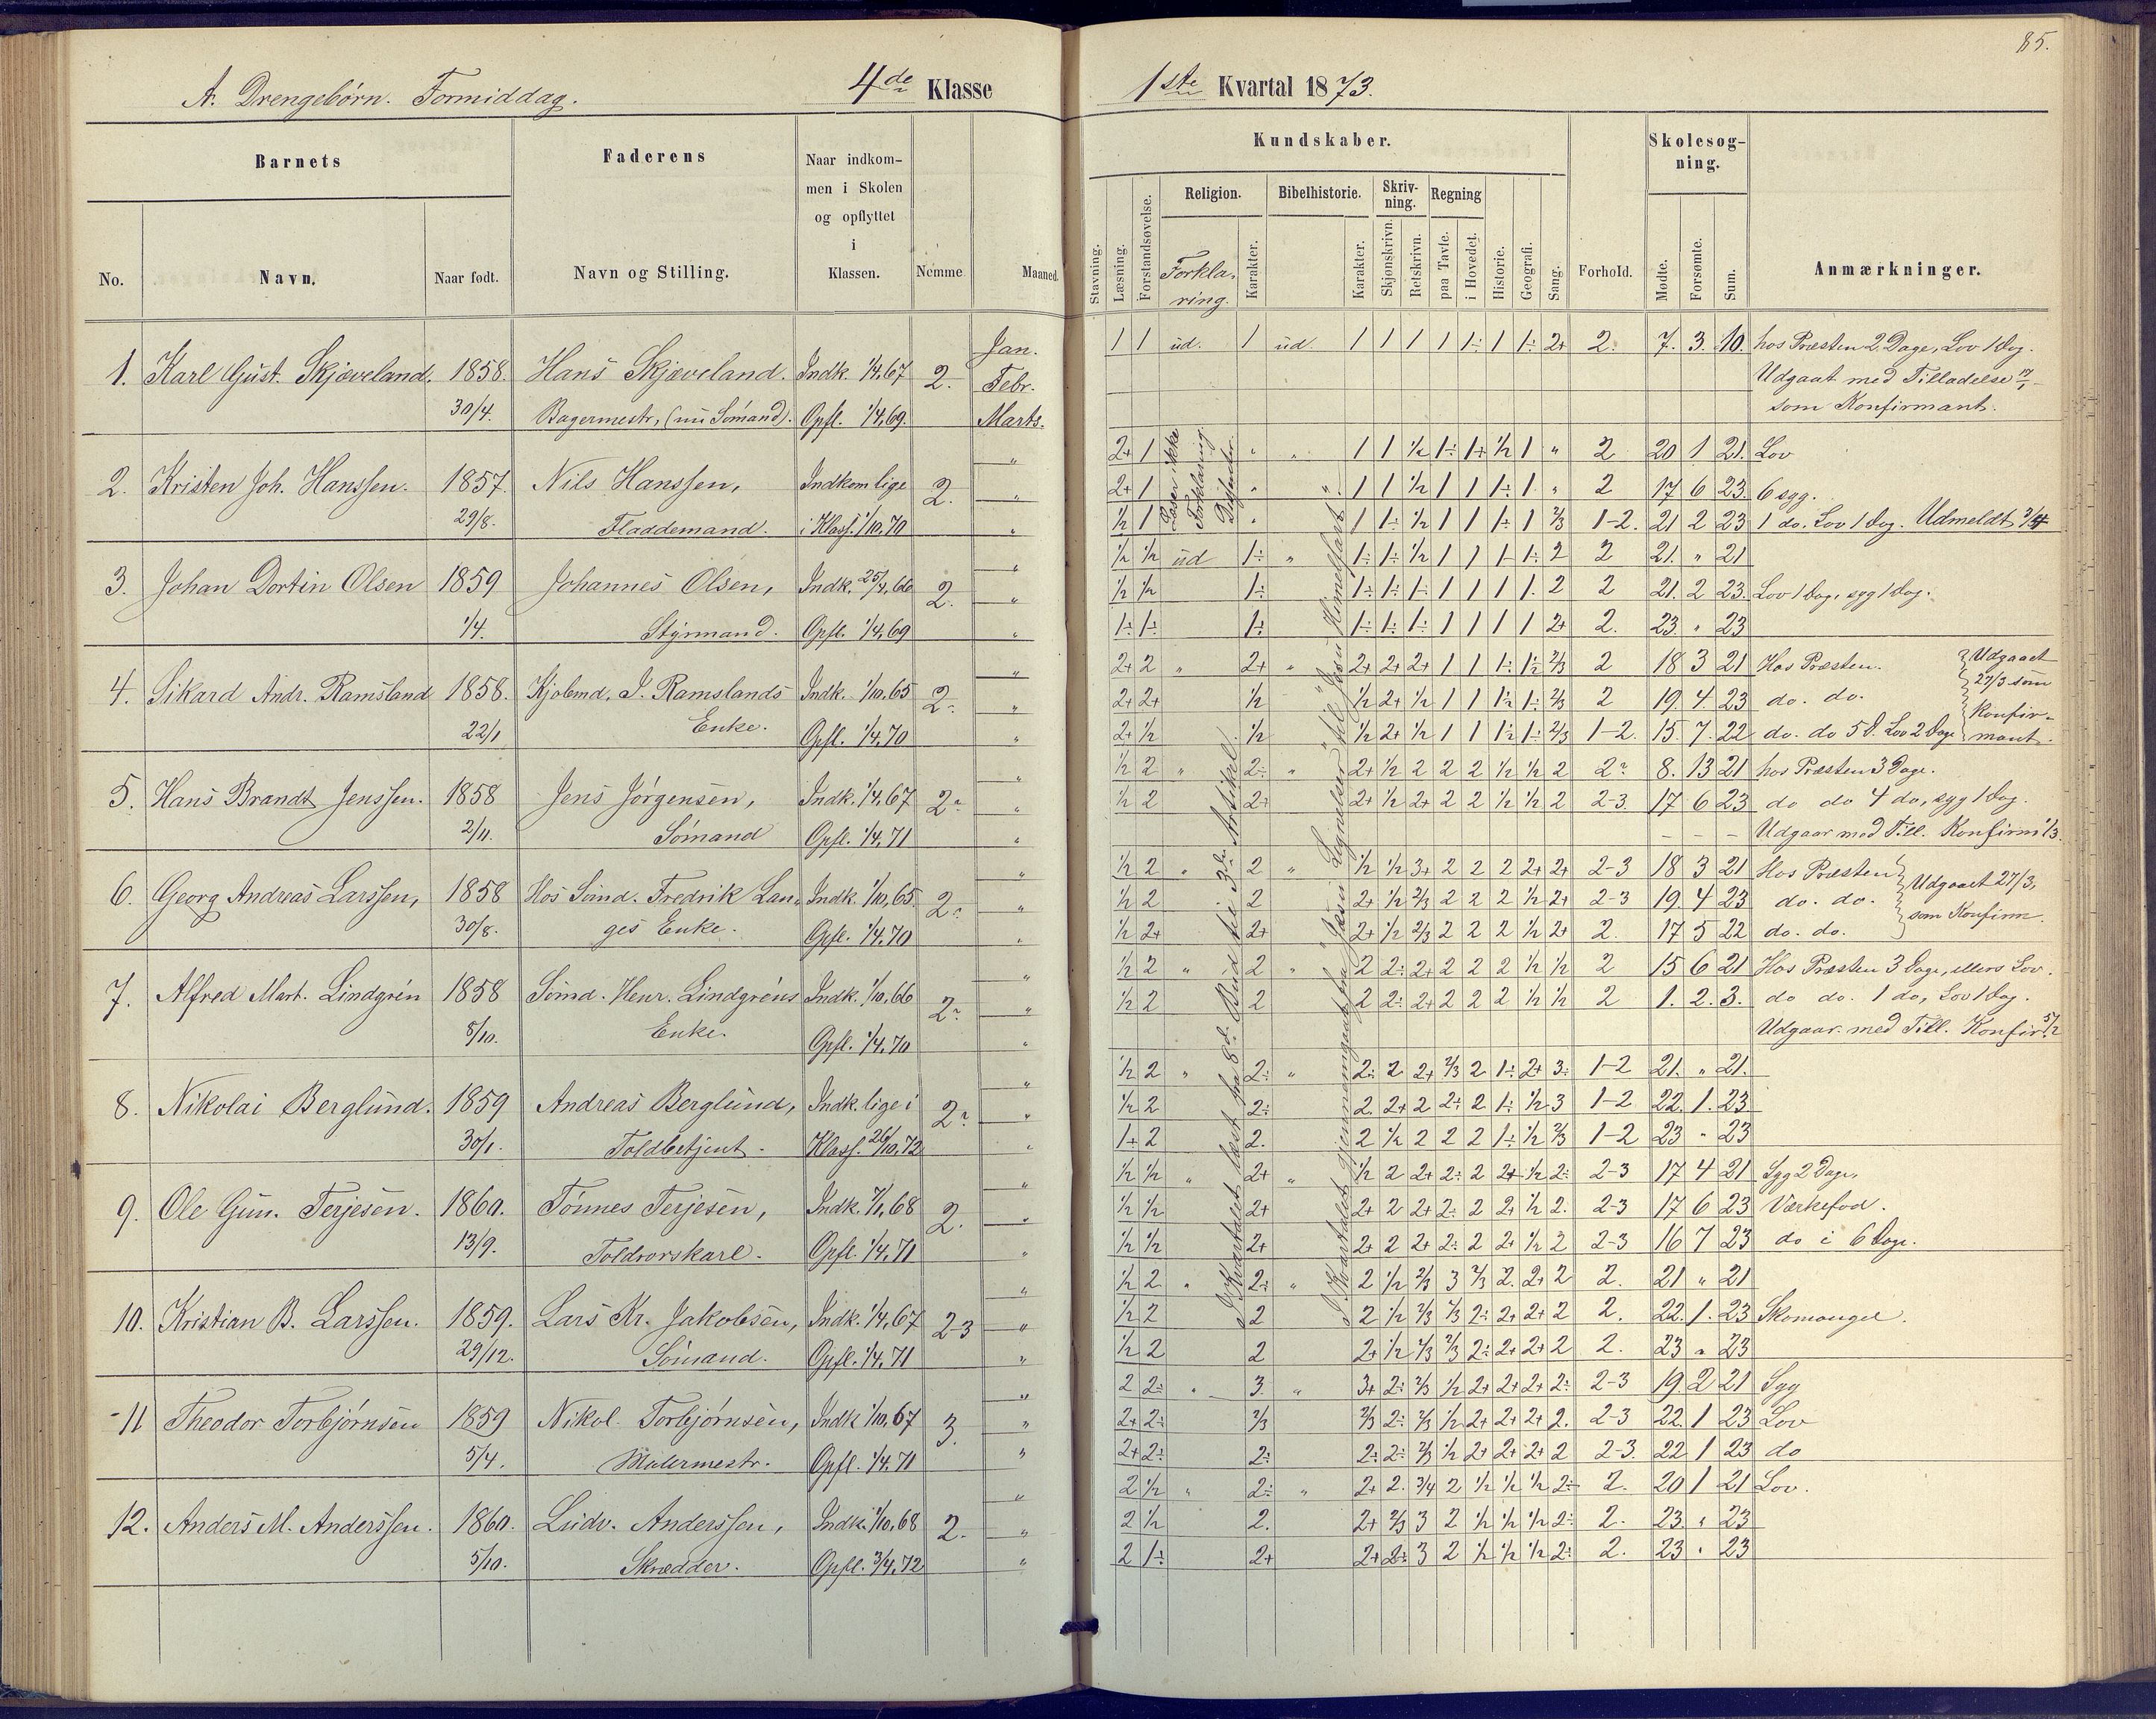 85.
A. Drengebörn. Formiddag. 4de Klasse
1ste Kvartal 1873.
Barnets
Faderens
Naar indkom-
men i Skolen
og opflyttet
i
Klassen.
Nemme
Maaned.
No.
Navn.
Naar født.
Navn og Stilling.
Kundskaber.
Skolesøg-
ning.
Religion.
Bibelhistorie.
Skriv-
ning.
Regning
Stavning.
Læsning.
Forstandsøvelse.
Forkla-
ring.
Karakter.
Karakter.
Skjønskrivn.
Retskrivn.
paa Tavle.
i Hovedet.
Historie.
Geografi.
Sang.
Forhold.
Mødte.
Forsømte.
Sum.
Anmærkninger.
1. Karl Gust. Skjæveland. 1858. Hans Skjæveland. Indk. 1/4,67 2. Jan.
Febr.
30/4. Bagermestr, (nu Sömand). Opfl. 1/4,69. Marts.
1 1 ud. 1 ud. 1 1 1 1 1÷ 1 1÷ 2+ 2. 7. 3. 10. hos Præsten 2 Dage, Lov 1 Dag.
Udgaat med Tilladelse
som Konfirmant.
2. Kristen Joh. Hanssen. 1857. Nils Hanssen, Indkom lige 2.
29/8. Fladdemand. i Klass. 1/10,70
2+ 1 " " 1 1 1/2 1÷ 1+ 1/2 1 " 2 20 1 21. Lov
2+ 1 " " 1 1 1/2 1 1 1÷ 1 " 2 17 6 23. 6 syg.
1/2 1 " 1 1÷ 1/2 1 1 1÷ 1 2/3 1-2. 21 2 23 1 do. Lov 1 Dag. Udmeldt 3/4
Læser ikke
Forklaring
3. Johan Dortin Olsen 1859 Johannes Olsen, Indk. 25/4,66 2.
1/4. Styrmand. Opfl. 1/4,69
1/2 1/2 ud 1÷ " 1÷ 1÷ 1/2 1 1 1÷ 1÷ 2 2 21. " 21
1/2 1/2 1÷ 1÷ 1÷ 1÷ 1 1 1 1. 2 2 21. 2 23. Lov 1 Dag, syg 1 Dag.
1÷ 1÷ 1÷ 1÷ 1÷ 1÷ 1 1 1 1 2+ 2. 23. " 23
4. Sikard Andr. Ramsland 1858. Kjøbmd. J. Ramslands Indk. 1/10,65 2.
22/1 Enke. Opfl. 1/4,70
2+ 2 " 2+ " 2+ 2+ 2+ 1 1 1÷ 1÷ 2/3 2 18 3 21 Hos Præsten. Udgaaet
2+ 2+ 1/2 1/2 2+ 1/2 1 1 1/2 1÷ 2/3 2 19. 4 23 do. do. 27/3 som
2+ 1/2 1/2 1/2 2+ 1/2 1 1 1/2 1÷ 2/3 1-2. 15. 7. 22 do. do 5 D. Lov 2 Dage Konfir-
mant.
5. Hans Brandt Jenssen. 1858 Jens Jörgensen, Indk. 1/4,67 2.
2/11. Sömand Opfl. 1/4,71
1/2 2 " 2÷ " 2+ 1/2 2 2 2 1/2 1/2 2 2. 8. 13 21 hos Præsten 3 Dage.
1/2 2 2+ 2+ 1/2 2+ 2 2 1/2 1/2 2 2-3. 17 6 23 do do 4 do, syg 1 Dag.
- - - Udgaar med Till. Konfirm 1/3.
6. Georg Andreas Larssen, 1858 Hos Sömd. Fredrik Lan- Indk. 1/10,65. 2.
30/8. ges Enke. Opfl. 1/4,70
1/2 2 " 2 " 1/2 1/2 3+ 2 2 2 2+ 2+ 2-3 18 3 21 Hos Præsten Udgaaet 27/3,
1/2 2 2 2+ 1/2 2/3 2 2 2 1/2 2+ 2-3 19. 4 23 do. do. som Konfirm.
1/2 2+ 2+ 2+ 1/2 2/3 2 2 2 1/2 2+ 2. 17 5 22 do. do.
7. Alfred Mart. Lindgrén 1858 Sömd. Henr. Lindgréns Indk. 1/10,66 2.
8/10. Enke. Opfl. 1/4,70
1/2 2 " 2 " 2 2÷ 2+ 2 2 2 1/2 1/2 2 15 6 21 Hos Præsten 3 Dage, ellers Lov.
1/2 2 2 2 2÷ 2+ 2 2 2 1/2 1/2 2 1. 2. 3. do do. 1 do, Lov 1 Dag.
Udgaar med Till. Konfir 5/2
8. Nikolai Berglund. 1859 Andreas Berglund, Indk. lige i 2.
30/1. Toldbetjent. Klass. 26/10,72
1/2 2 " 2÷ " 2÷ 2 2+ 2/3 2 1÷ 2+ 3÷ 1-2 21. " 21.
1/2 2 2÷ 2. 2+ 2 2÷ 2 1÷ 1/2 3 1-2 22. 1. 23
1+ 2 2. 2 1/2 2 2 2 1÷ 1/2 2/3 1-2 23 " 23
9. Ole Gun. Terjesen. 1860. Tönnes Terjesen, Indk. 7/1,68 2.
13/9. Toldrorskarl. Opfl. 1/4,71
1/2 1/2 " 2+ " 1/2 2 2+ 2÷ 2 2+ 1/2 2÷ 2-3 17 4 21 Syg 2 Dage,
1/2 1/2 2+ 2+ 2 2+ 2÷ 2 2+ 1/2 2. 2-3 17 6 23 Værkefod.
1/2 1/2 2+ 2+ 2 2+ 2÷ 2 2+ 1/2 2 2-3 16 7 23 do i 6 Dage.
10. Kristian B. Larssen. 1859. Lars Kr. Jakobsen, Indk. 1/4,67 2-3
29/12. Sömand. Opfl. 1/4,71
1/2 2 " 2÷ " 2 1/2 2/3 3 2/3 2. 2+ 2 2. 21 " 21
1/2 2 2 2 1/2 2/3 2/3 2÷ 2+ 2+ 2 2. 22. 1. 23 Skomangel.
1/2 2 2 2+ 1/2 2/3 2/3 2÷ 2+ 2+ 2 2. 23 " 23
11 Theodor Torbjörnsen 1859 Nikol. Torbjörnsen, Indk 1/10,67 3.
5/4. Malermestr. Opfl. 1/4,71
2 2÷ " 3. " 3+ 2÷ 2/3 1/2 2+ 2+ 2+ 2÷ 2-3 19. 2 21 Syg
2+ 2÷ 2/3 2/3 2÷ 2/3 1/2 2+ 2+ 2+ 2. 2-3 22. 1 23 Lov
2+ 2÷ 2÷ 2÷ 2÷ 2/3 1/2 2+ 2+ 2+ 2 2-3. 22 1 23 do
12. Anders M. Anderssen. 1860. Ludv. Anderssen, Indk. 1/10,68 2.
5/10. Skrædder. Opfl. 3/4,72
2 1/2 " 2÷ " 2+ 2. 3/4 2 1/2 1/2 1/2 2÷ 2. 20 1 21 Lov.
2 1/2 2. 2+ 2/3 3 2 1/2 1/2 1/2 2÷ 2. 23. " 23
2 1÷ 2+ 2+ 2÷ 3 2 1/2 1/2 1/2 2÷ 2. 23 " 23
I Kvartalet læst fra 8de Bud til 3die Artikel.
I Kvartalet gjennemgaaet fra "Jesu Lignelser" til "Jesu Himmelfart".